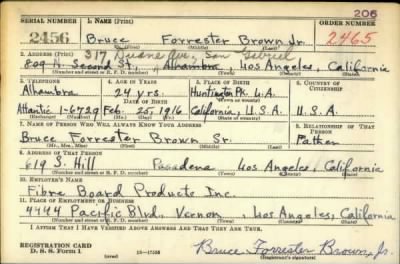 206
SERIAL NUMBER 1. NAME (Print) ORDER NUMBER
2456 Bruce Forrester Brown Jr. 2465
2. ADDRESS (Print) 317 Duane Ave, San Gabriel
809 N. Second St, Alhambra, Los Angeles, California
3. TELEPHONE 4. AGE IN YEARS 5. PLACE OF BIRTH 6. COUNTRY OF CITIZENSHIP
Alhambra 24 yrs. Huntington Pk. L.A.
DATE OF BIRTH
Atlantic 1-6729 Feb. 25, 1916 California, U.S.A. U.S.A.
7. NAME OF PERSON WHO WILL ALWAYS KNOW YOUR ADDRESS RELATIONSHIP OF THAT PERSON
Bruce Forrester Brown Sr. Father
(Mr., Mrs., Miss) (First) (Middle) (Last)
8. ADDRESS OF THAT PERSON
619 S. Hill Pasadena Los Angeles, California
(Number and street or R. F. D. number) (Town) (County) (State)
10. EMPLOYER'S NAME
Fibre Board Products Inc.
11. PLACE OF EMPLOYMENT OR BUSINESS
4444 Pacific Blvd., Vernon, Los Angeles, California
(Number and street or R. F. D. number) (Town) (County) (State)
I AFFIRM THAT I HAVE VERIFIED ABOVE ANSWERS AND THAT THEY ARE TRUE.
REGISTRATION CARD
D. S. S. Form 1 (over) Bruce Forrester Brown, Jr.
(Registrant's signature)